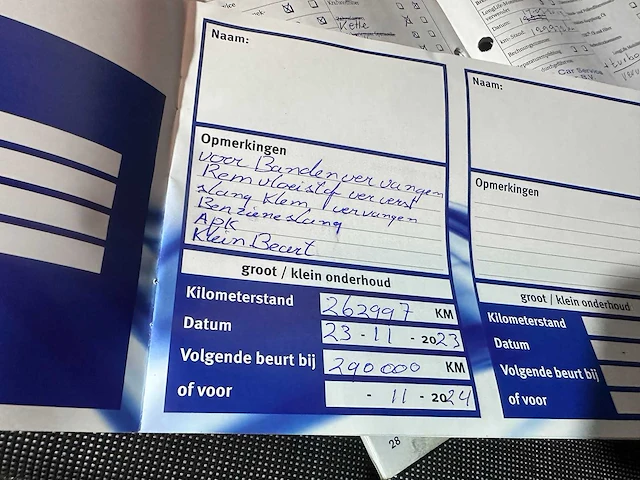 Kette
Datum:
km. Stand
Car Service
turbo
Naam:
Opmerkingen
voor Banden vervangen
Rem vloeistof ververst
slang klem vervangen
Benzine slang
APK
Klein Beurt
groot / klein onderhoud
Kilometerstand 262997 KM
Datum 23 - 11 - 2023
Volgende beurt bij 290000 KM
of voor - 11 - 2024
Naam:
Opmerkingen
groot / klein onderhoud
Kilometerstand
Datum
Volgende beurt bij
of voor
28